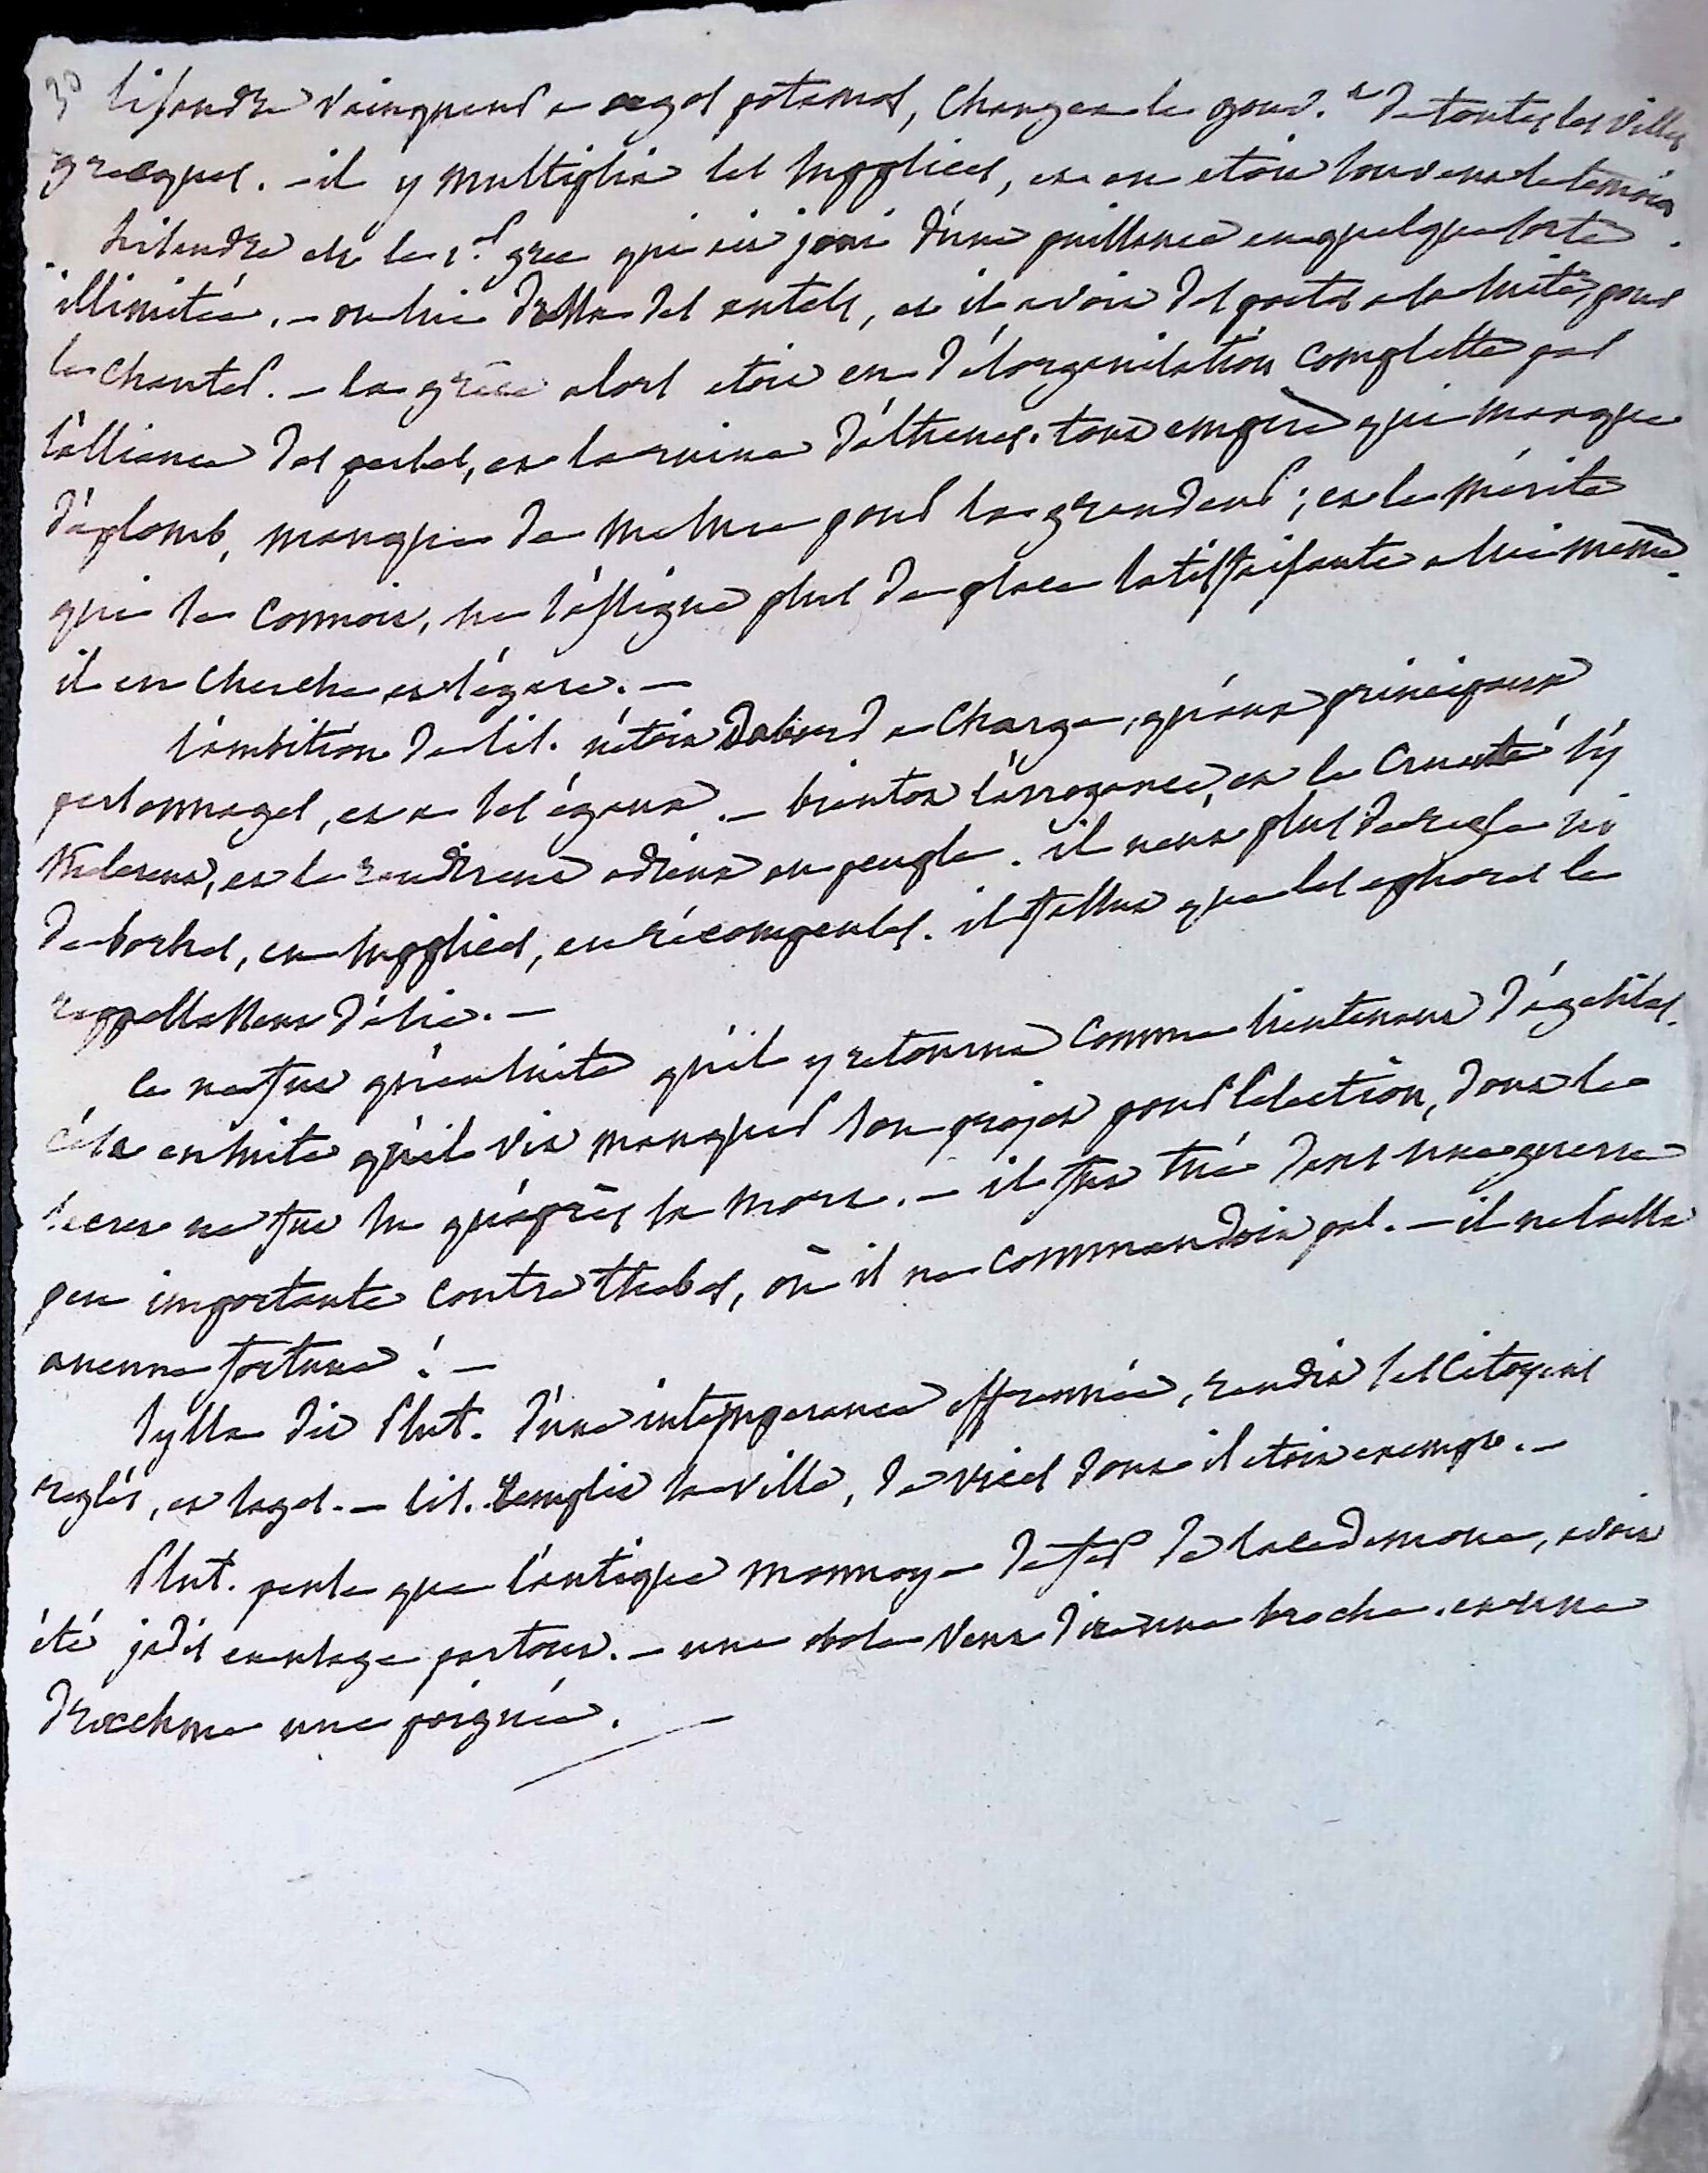 3° lisandre vainqueur a aegos potamos, changea le gouv.t de toutes les villes
grecques. - il y multiplia les supplices, et en etoit souvent le temoin.
lisandre est le 1.er grec qui ait joui d'une puissance en quelque sorte
illimitée. - on lui dressa des autels, et il avoit des poetes a sa suite, pour
le chanter. - la grèce alors etoit en désorganisation complette par
l'alliance des perses, et la ruine d'athenes. tout empire qui manque
d'aplomb, manque de mesure pour la grandeur ; et le mérite
qui se connoit, ne s'assigne plus de place satisfaisante a lui même.
il en cherche et s'égare. -
l'ambition de lis. n'étoit dabord a charge, qu'aux principaux
personnages, et a ses égaux. - bientot l'arrogance, et la cruauté s'y
melerent, et le rendirent odieux au peuple. il n'eut plus de regle ni
de bornes, en supplices, en récompenses. il fallut que les ephores le
rappellassent d'asie. -
ce ne fut qu'ensuite qu'il y retourna comme lieutenant d'agesilas.
c'est ensuite qu'il vit manquer son projet pour l'election, dont le
secret ne fut su qu'après sa mort. - il fut tué dans une guerre
peu importante contre thebes, où il ne commandoit pas. - il ne laissa
aucune fortune ! -
sylla dit Plut. d'une intemperance effrennée, rendit ses citoyens
reglés, et sages. - lis. remplit sa ville, de vices dont il etoit exempt. -
Plut. pense que l'antique monnoye de fer de lacedemone, avoit
été jadis en usage partout. - une obole veut dire une broche. et une
drachme une poignée.